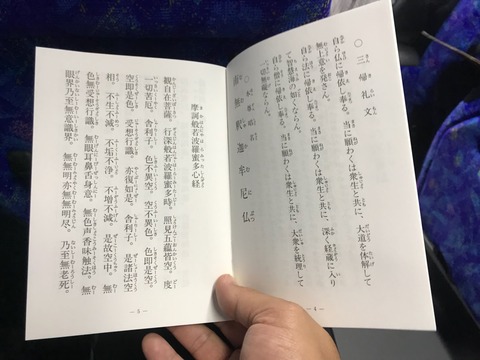 ○三帰礼文
自ら仏に帰依し奉る。当に願わくは衆生と共に、大道を体解して
無上意を発さん。
自ら法に帰依し奉る。当に願わくは衆生と共に、深く経蔵に入り
て智慧海の如くならん。
自ら僧に帰依し奉る。当に願わくは衆生と共に、大衆を統理して
一切無碍ならん。
○
南無釈迦牟尼仏
— 4 —
摩訶般若波羅蜜多心経
観自在菩薩。行深般若波羅蜜多時。照見五蘊皆空。度
一切苦厄。舎利子。色不異空。空不異色。色即是空。
空即是色。受想行識。亦復如是。舎利子。是諸法空
相。不生不滅。不垢不浄。不増不減。是故空中。無
色無受想行識。無眼耳鼻舌身意。無色声香味触法。無
眼界乃至無意識界。無無明亦無無明尽。乃至無老死。
— 5 —